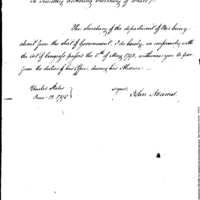 The Secretary of the department of War being
absent from the Seat of Government, I do hereby, in conformity with
the Act of Congress passed the 8th of May, 1792, authorize you to per
form the duties of his office, during his Absence.
United States
signed
June 1798
John Adams